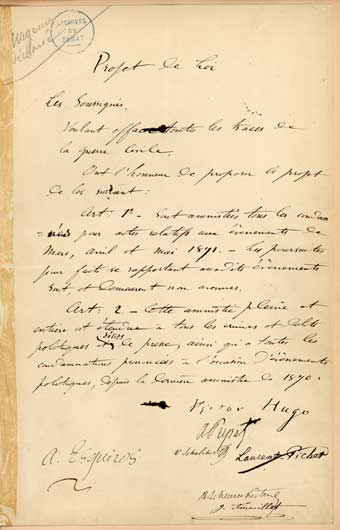 Urgence déclarée
ARCHIVES DU SÉNAT
Projet de Loi
Les Soussignés,
Voulant effacer toutes les traces de
la guerre civile.
Ont l'honneur de proposer le projet
de loi suivant :
Art 1er - Sont amnistiés tous les condam
=nés pour actes relatifs aux événements de
Mars, avril et mai 1871. - Les poursuites
pour faits se rapportant auxdits événements
sont et demeurent non avenues.
Art : 2 - Cette amnistie pleine et
entière est étendue à tous les crimes et délits
politiques délits de presse, ainsi qu'à toutes les
condamnations prononcées à l'occasion d'événements
politiques, depuis la dernière amnistie de 1870.
Victor Hugo
A Peyrat
A. Esquiros
V Schœlcher
Laurent-Pichat
A Scheurer Kestner